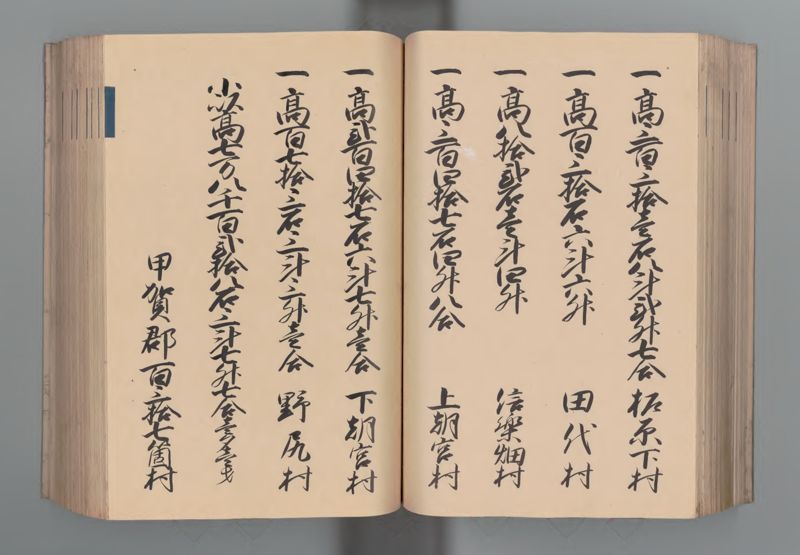 一高三百三拾壱石八斗弐升七合 柘原下村
一高百三拾石六斗六升 田代村
一高八拾弐石壱斗四升 信楽畑村
一高三百四拾七石四升八合 上朝宮村
一高弐百四拾七石六斗七升壱合 下朝宮村
一高百七拾三石三斗三升壱合 野尻村
小以高七万八千百弐拾八石三斗七升七合
甲賀郡百三拾七箇村